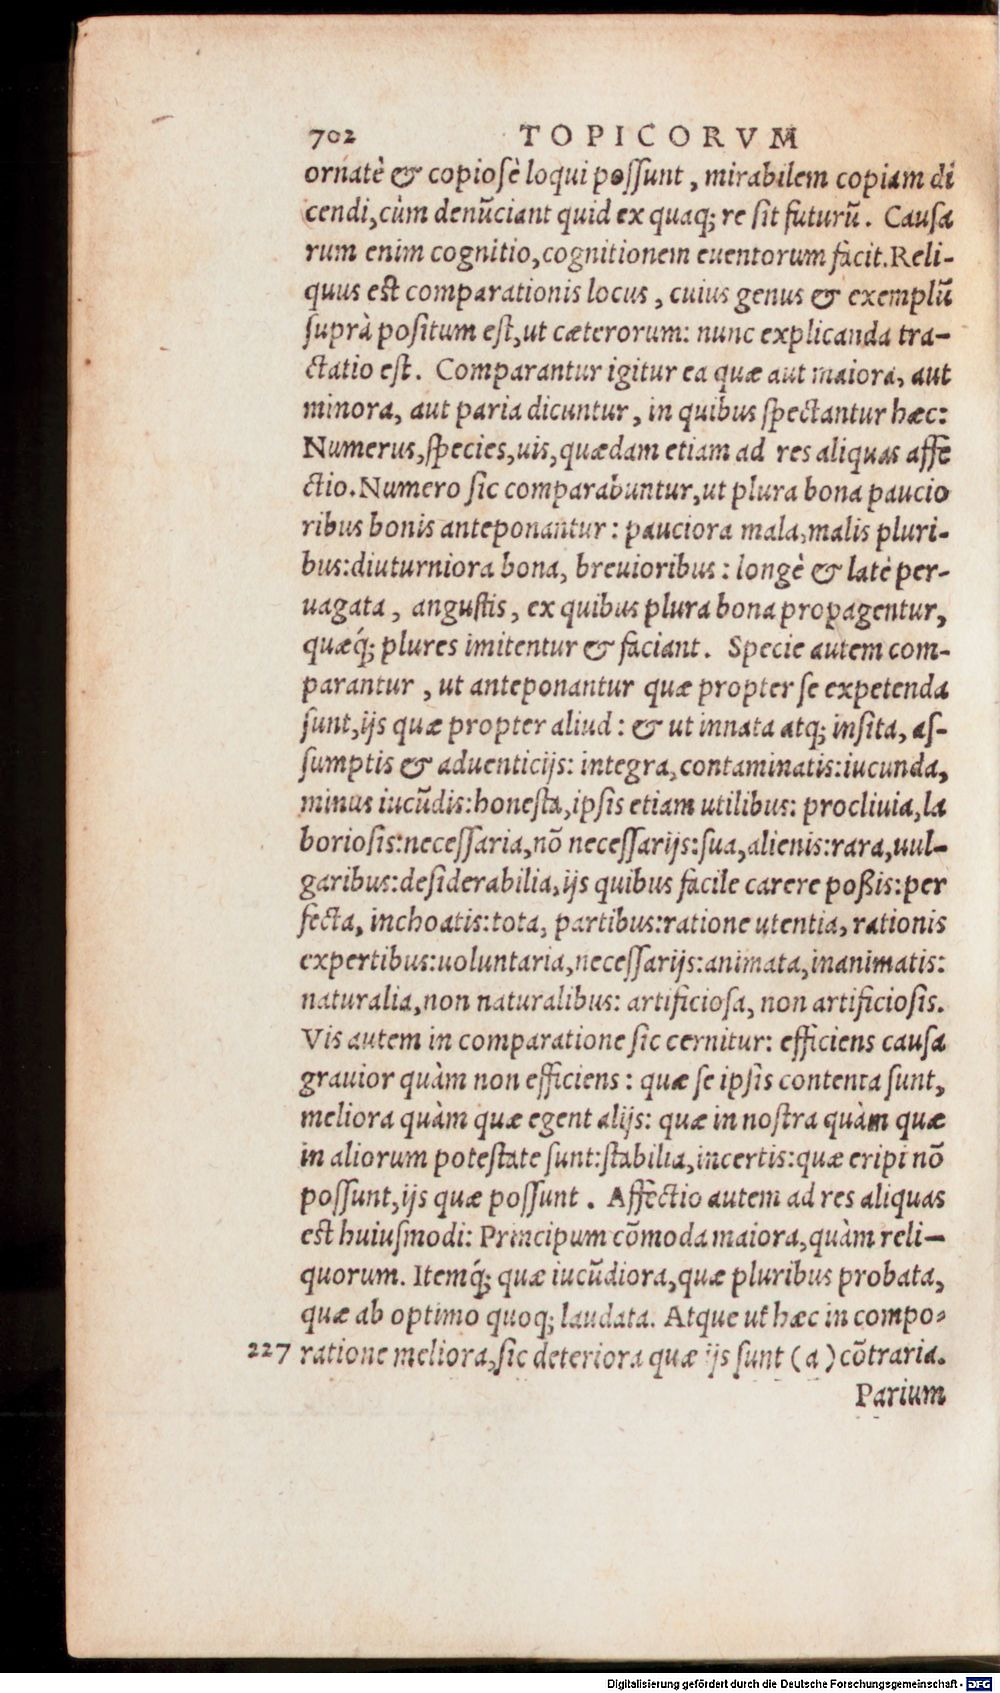 702 TOPICORVM
ornatè & copiosè loqui possunt, mirabilem copiam di
cendi, cùm denũciant quid ex quaq; re sit futurũ. Causa
rum enim cognitio, cognitionem euentorum facit. Reli-
quus est comparationis locus, cuius genus & exemplũ
suprà positum est, ut cæterorum: nunc explicanda tra-
ctatio est. Comparantur igitur ea quæ aut maiora, aut
minora, aut paria dicuntur, in quibus spectantur hæc:
Numerus, species, uis, quædam etiam ad res aliquas affe
ctio. Numero sic comparabuntur, ut plura bona paucio
ribus bonis anteponantur: pauciora mala, malis pluri-
bus: diuturniora bona, breuioribus: longè & latè per-
uagata, angustis, ex quibus plura bona propagentur,
quæq́; plures imitentur & faciant. Specie autem com-
parantur, ut anteponantur quæ propter se expetenda
sunt, ijs quæ propter aliud: & ut innata atq; insita, as-
sumptis & aduenticijs: integra, contaminatis: iucunda,
minus iucũdis: honesta, ipsis etiam utilibus: procliuia, la
boriosis: necessaria, nõ necessarijs: sua, alienis: rara, uul-
garibus: desiderabilia, ijs quibus facile carere poßis: per
fecta, inchoatis: tota, partibus: ratione utentia, rationis
expertibus: uoluntaria, necessarijs: animata, inanimatis:
naturalia, non naturalibus: artificiosa, non artificiosis.
Vis autem in comparatione sic cernitur: efficiens causa
grauior quàm non efficiens: quæ se ipsis contenta sunt,
meliora quàm quæ egent alijs: quæ in nostra quàm quæ
in aliorum potestate sunt: stabilia, incertis: quæ eripi nõ
possunt, ijs quæ possunt. Affectio autem ad res aliquas
est huiusmodi: Principum cõmoda maiora, quàm reli-
quorum. Itemq́; quæ iucũdiora, quæ pluribus probata,
quæ ab optimo quoq; laudata. Atque ut hæc in compo-
227 ratione meliora, sic deteriora quæ ijs sunt (a) cõtraria.
Parium
Digitalisierung gefördert durch die Deutsche Forschungsgemeinschaft - DFG